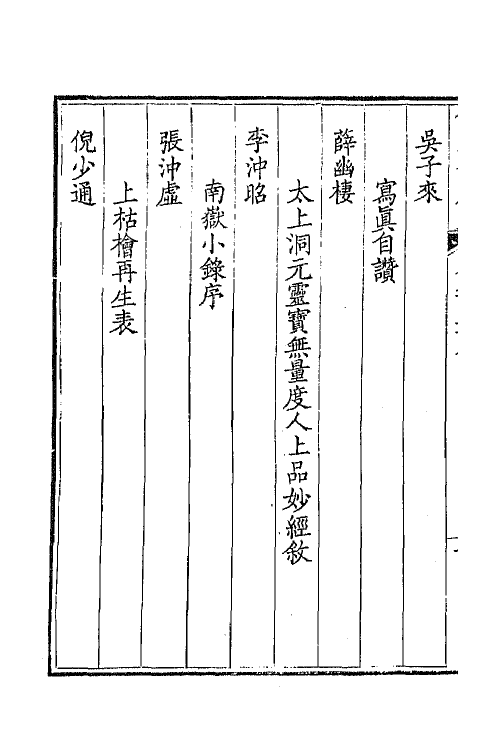 吳子來
寫眞自讚
薛幽棲
太上洞元靈寶無量度人上品妙經敘
李沖昭
南嶽小錄序
張沖虛
上枯檜再生表
倪少通